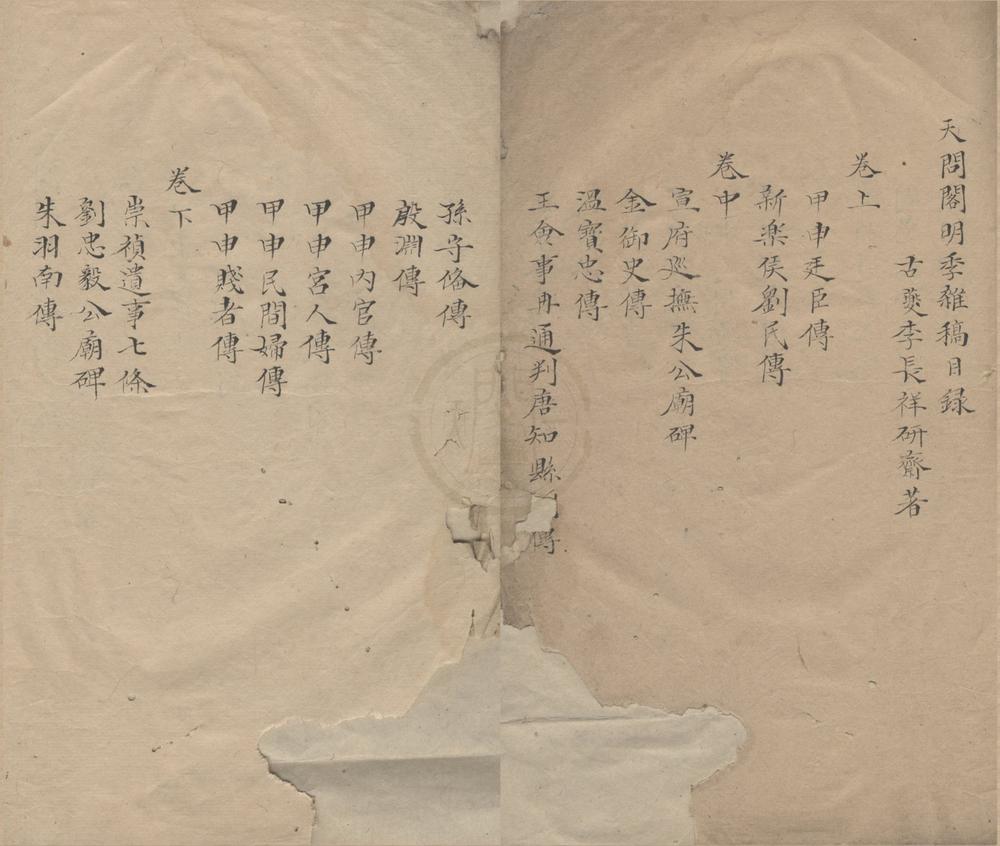 天問閣明季雜稿目録
古夔李長祥研齋著
卷上
甲申廷臣傳
新楽侯劉民傳
卷中
宣府巡撫朱公廟碑
金御史傳
溫寶忠傳
王僉事冉通判唐知縣傳
孫守俻傳
殷淵傳
甲申内官傳
甲申宮人傳
甲申民間婦傳
甲申賤者傳
卷下
崇禎遺事七條
劉忠毅公廟碑
朱羽南傳